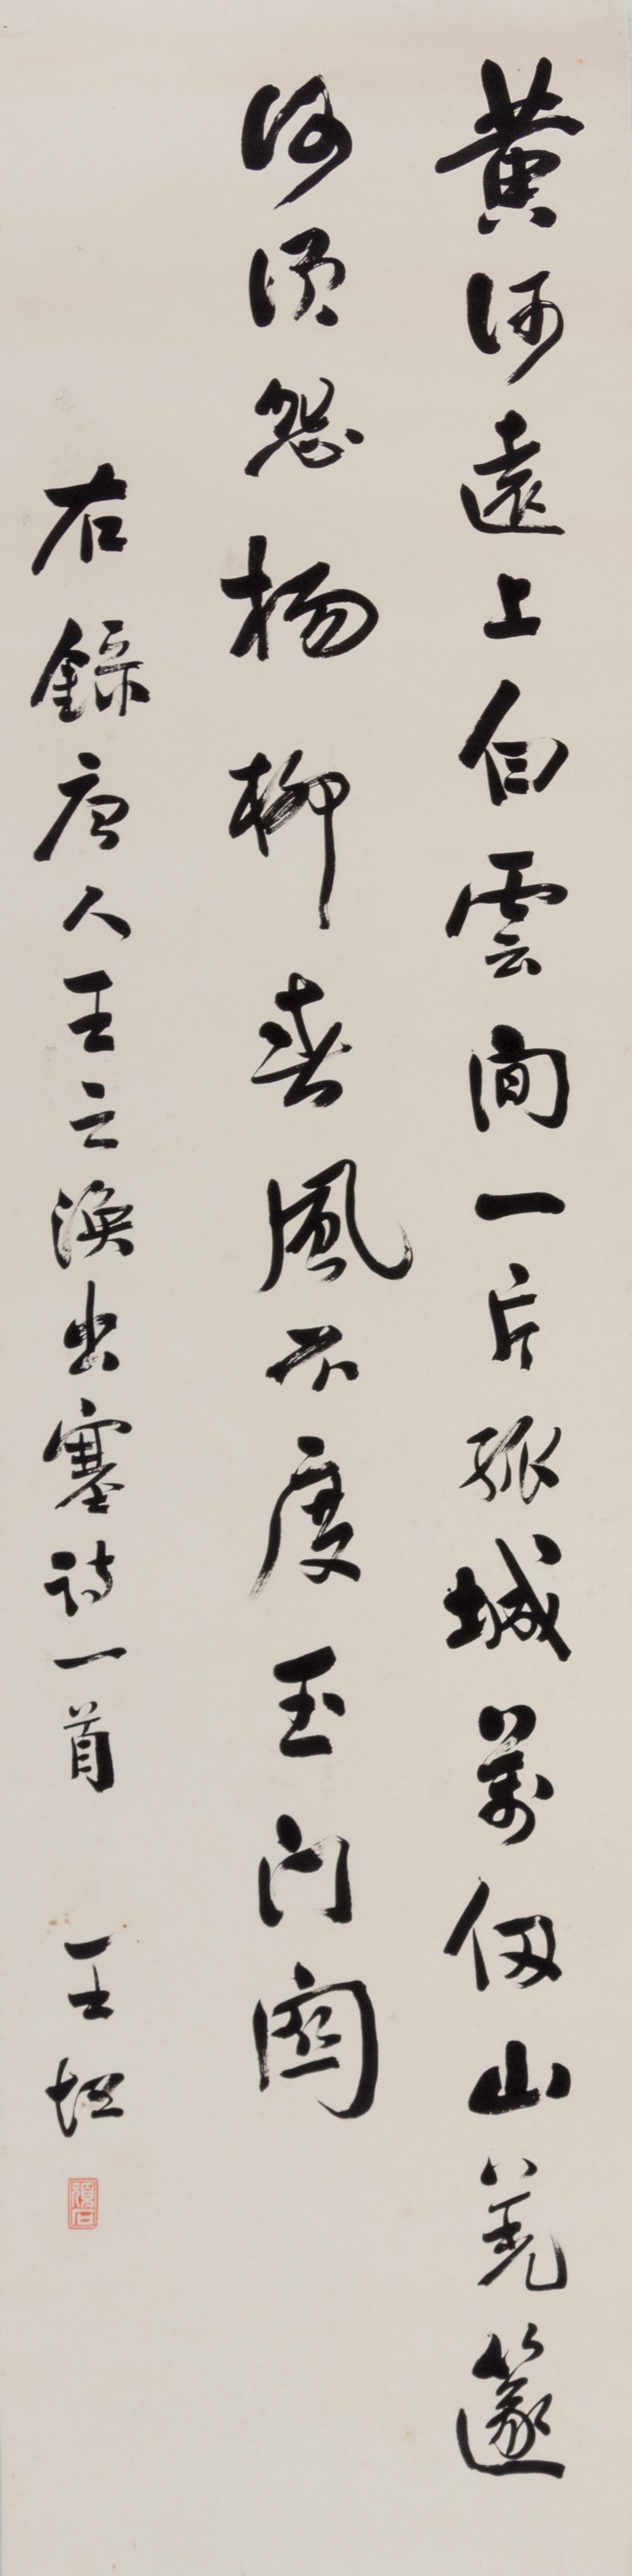 黄河遠上白雲間一片孤城萬仞山羌篴
何須怨楊柳春風不度玉門關
右錄唐人王之渙出塞詩一首 王坦